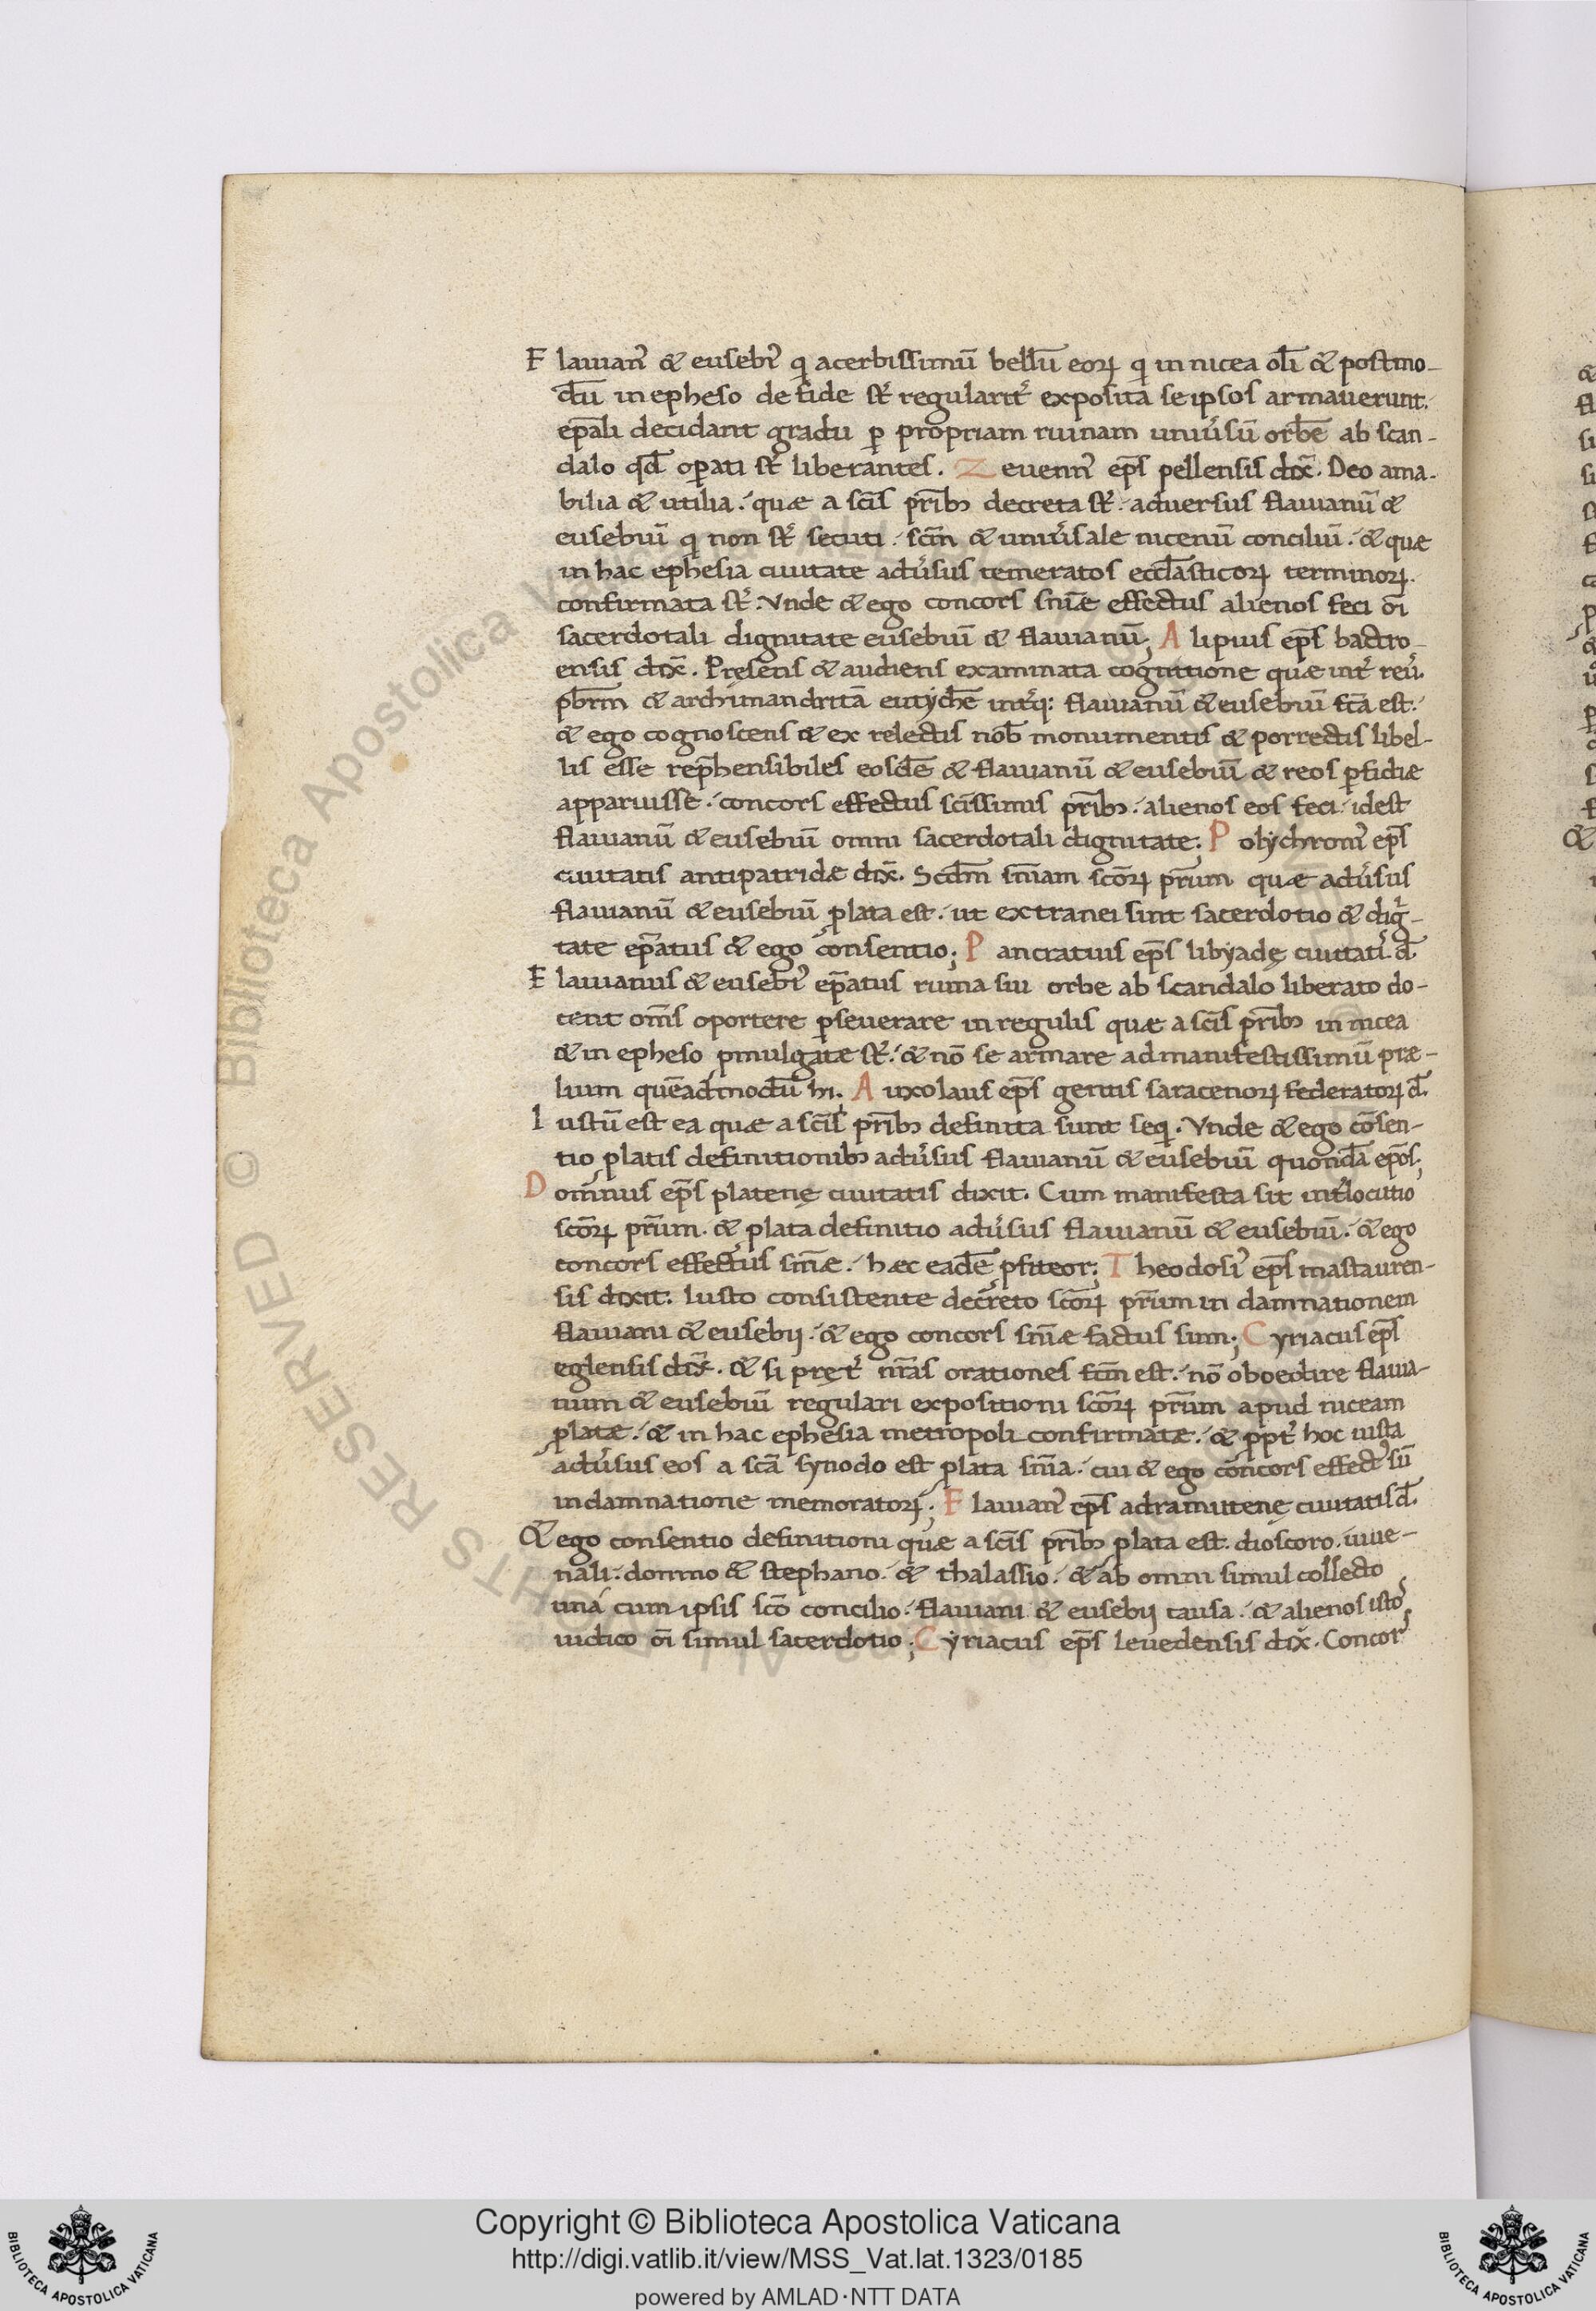 Flauian᾿ & eusebi᾿ q acerbissimū bellū eoꝝ q in nicea oli̅ & postmo-
du̅ in epheso de fide st᾿ regularit᾿ exposita se ipsos armauerunt.
ep̅ali decidant gradu ꝑ propriam ruinam uniu᾿sū orbe̅ ab scan-
dalo qd̅ oꝑati st᾿ liberantes. Zeuenn᾿ ep̅s pellensis dix̅. Deo ama-
bilia & utilia. quæ a sc̅is pr̅ib; decreta st᾿. aduersus flauianū &
eusebiū q non st᾿ secuti. sc̅m & uniu᾿sale nicenū conciliū. & quæ
in hac ephesia ciuitate adu᾿sus temeratos eccl̅asticoꝝ terminoꝝ.
confirmata st᾿. Vnde & ego concors sn̅iæ effectus alienos feci oi̅
sacerdotali dignitate eusebiū & flauianū; Alipius ep̅s bactro-
ensis dix̅. Presens & audiens examinata cognitione quæ int᾿ reu᾿.
pb̅rm & archimandritā eutychē int᾿q: flauianū & eusebiū fc̅a est.
& ego cognoscens & ex relectis nob̅ monumentis & porrectis libel-
lis esse rep̅hensibiles eosdē & flauianū & eusebiū & reos ꝑfidiæ
apparuisse. concors effectus sc̅issimis pr̅ib;. alienos eos feci. idest
flauianū & eusebiū omni sacerdotali dignitate; Polychroni᾿ ep̅s
ciuitatis antipatridæ dix̅. Scd̅m sn̅iam sc̅oꝝ pr̅um quæ adu᾿sus
flauianū & eusebiū ꝓlata est. ut extranei sint sacerdotio & dig᾿-
tate ep̅atus & ego consentio; Pancratius ep̅s libyadę ciuitati᾿ d̅.
Flauianus & eusebi᾿ ep̅atus ruina sui orbe ab scandalo liberato do-
cent om̅s oportere ꝑseuerare in regulis quæ a sc̅is pr̅ib; in nicea
& in epheso ꝓmulgatæ st᾿. & nō se armare ad manifestissimū præ-
lium quēadmodū hi; Auxolaus ep̅s gentis saracenoꝝ federatoꝝ d̅.
Iustū est ea quæ a sc̅is pr̅ib; definita sunt seq. Vnde & ego cōsen-
tio ꝓlatis definitionib; adu᾿sus flauianū & eusebiū quondā ep̅os;
Domnus ep̅s platenę ciuitatis dixit. Cum manifesta sit int᾿locutio
sc̅oꝝ pr̅um. & ꝓlata definitio adu᾿sus flauianū & eusebiū. & ego
concors effectus sn̅iæ. hæc eadē ꝓfiteor; Theodosi᾿ ep̅s mastauren-
sis dixit. Iusto consistente decreto sc̅oꝝ pr̅um in damnationem
flauiani & eusebij. & ego concors sn̅iæ factus sum; Cyriacus ep̅s
eglensis dix̅. & si pręt᾿ nr̅as orationes fc̅m est. nō oboedire flauia-
num & eusebiū regulari expositioni sc̅oꝝ pr̅um apud niceam
ꝓlatæ. & in hac ephesia metropoli confirmatæ. & ꝓpt᾿ hoc iusta
adu᾿sus eos a sc̅a synodo est ꝓlata sn̅ia. cui & ego concors effect᾿ sū
in damnatione memoratoꝝ; Flauian᾿ ep̅s adramitenę ciuitatis d̅.
& ego consentio definitioni quæ a sc̅is pr̅ib; ꝓlata est. dioscoro. iuue-
nali. domno & stephano. & thalassio. & ab omni simul collecto
una cum ipsis sc̅o concilio. flauiani & eusebij causa. & alienos istos
iudico oi̅ simul sacerdotio; Cyriacus ep̅s leuedensis dix̅. Concors
Copyright © Biblioteca Apostolica Vaticana
http://digi.vatlib.it/view/MSS_Vat.lat.1323/0185
powered by AMLAD·NTT DATA